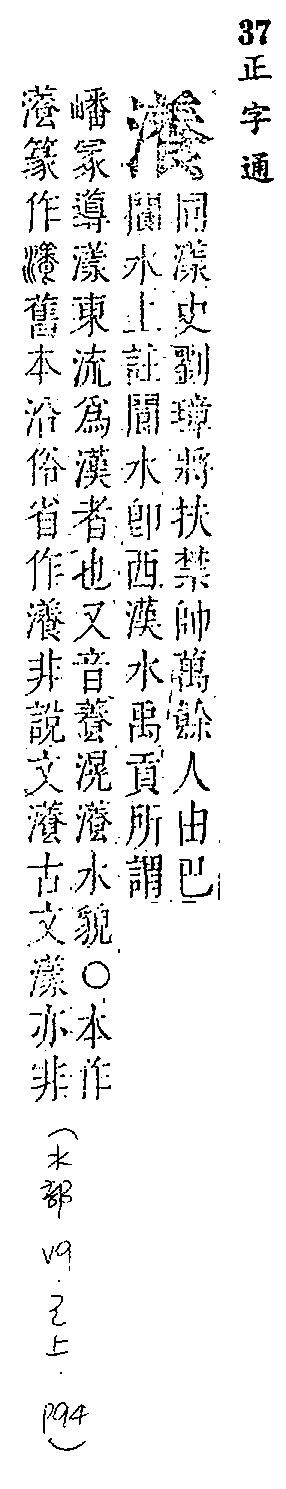 37 正字通
瀁
同漾史劉璋將扶禁帥萬餘人由巴
閬水上註閬水即西漢水禹貢所謂
嶓冢導漾東流為漢者也又音養滉瀁水貌○本作
瀁篆作瀁舊本沿俗省作瀁非說文瀁古文漾亦非
(水部 V9.已上.P94)